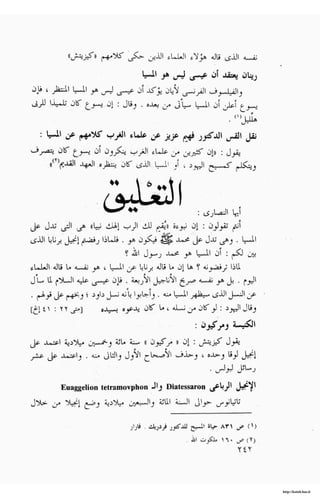 نفسه الذى قاله هؤلاء العلماء الذين حكى كلامهم « كيزيتش »
رينان يعتقد أن عيسى ليس هو المسيا
والفيلسوف الفرنسى رينان يؤكد أن عيسى ليس هو المسيا المنتظر ، فإن
يسوع أعلن أن المسيا سيأتى من بعده . قال : إن يسوع كان تلميذا للربى
هلليل (١) .
نقل القس الدكتور فهيم عزيز عن علماء الغرب كلامهم عن المسيا :
يقول : « إن كثيرين من علماء الغرب ينكرون أن يسوع كان يتصرف
ويتكلم كمسيح اليهود ، أو المسيا الذى كان ينتظره العهد القديم » (٢)
التعليق
أيها النصارى :
أنتم تقولون : إن نبوءة « يقيم لك الرب إلهك نبيا » هى التى تدل على
المسيا . وهى تدل على محمد ﷺ فيكون هو . فلماذا رفضتم إنجيل برنابا الذى
بيّن لكم : أن المسيا هو محمد رسول الله ؟
لماذا ترفضونه ؟ ها إن ما قاله برنابا عن المسيا ، هو نفسه ما قاله العلماء
اليوم . بل هو نفسه صرح الأناجيل الأربعة . فإن عيسى عليه السلام لما سأل
اليهود عن النسل الذى سيظهر المسيا منه . وأجابوا بأنه نسل داود ؛ وبخهم على قولهم .
وقال اليهود : لو كان من نسله ، ما كان داود يدعوه بسيده [متى ٢٢ : ٤١ إلخ]
الكنيسة ومركيون :
يقول كيزيتش : إن « مركيون » سنة مائة وخمسين ميلادية اعتمد على
إنجيل لوقا وحده ، وحذف الأصحاح الأول والثانى منه . واعتمد على عشر
رسائل لبولس .
الإنجيل الرباعى Diatessaron والـ Euaggelion tetramovphon
تاتيانوس حوالى السنة المائة والسبعين ميلادية وضع إنجيلا من خلال
(١) ص ٨٣١ حياة المسيح للدكتور فردريك . فارار
(٢) ص ١٦٠ ملكوت الله .
٢٤٢
http://kotob.has.it